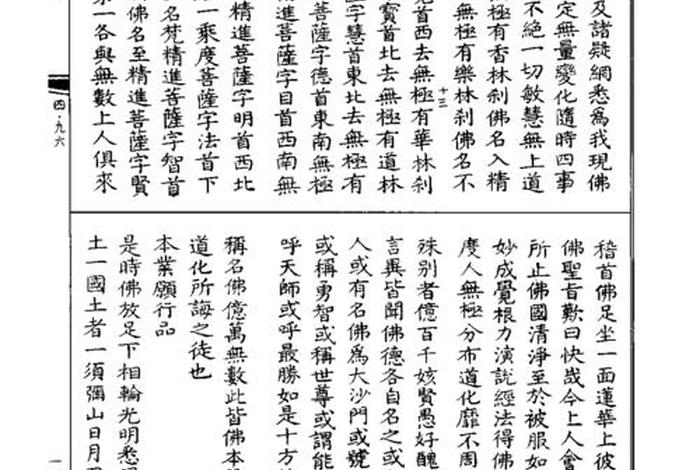 及諸疑網悉為我現佛
定無量變化隨時四事
不絕一切敏慧無上道
無極有香林刹佛名入精
無極有樂林刹佛名不
見首西去無極有華林刹
十三
寶首北去無極有道林
字慧首東北去無極有
菩薩字德首東南無極
進菩薩字目首西南無
精進菩薩字明首西北
一乘度菩薩字法首下
名梵精進菩薩字智首
佛名至精進菩薩字賢
第一各與無數上人俱來
四·九六
一
稽首佛足坐一面蓮華上彼
佛聖旨歎曰快哉今上人會
所止佛國清淨至於被服如
妙成覺根力演說經法得佛
度人無極分布道化靡不周
殊別者億百千姟賢愚好醜
言異皆聞佛德各自名之或
人或有名佛為大沙門或號
或稱勇智或稱世尊或謂能
呼天師或呼最勝如是十方
稱名佛億萬無數此皆佛本
道化所誨之徒也
本業願行品
是時佛放足下相輪光明悉
土一國土者一須彌山日月